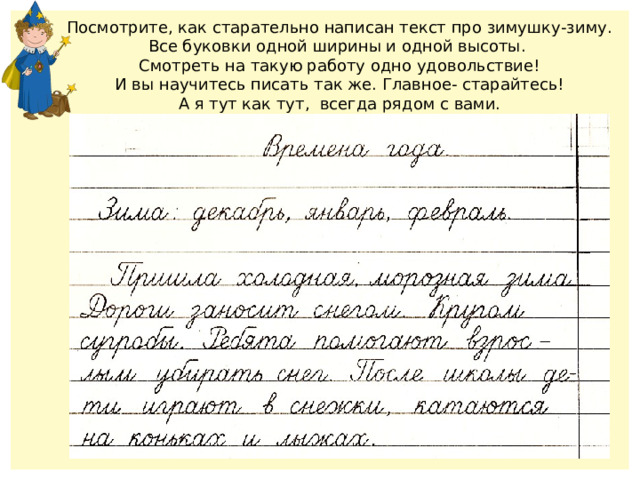 Посмотрите, как старательно написан текст про зимушку-зиму.
Все буковки одной ширины и одной высоты.
Смотреть на такую работу одно удовольствие!
И вы научитесь писать так же. Главное- старайтесь!
А я тут как тут, всегда рядом с вами.
Времена года
Зима: декабрь, январь, февраль.
Пришла холодная, морозная зима
Дороги заносит снегом Кругом
сугробы. Ребята помогают взрос –
лым убирать снег. После школы де-
ти играют в снежки, катаются
на коньках и лыжах.